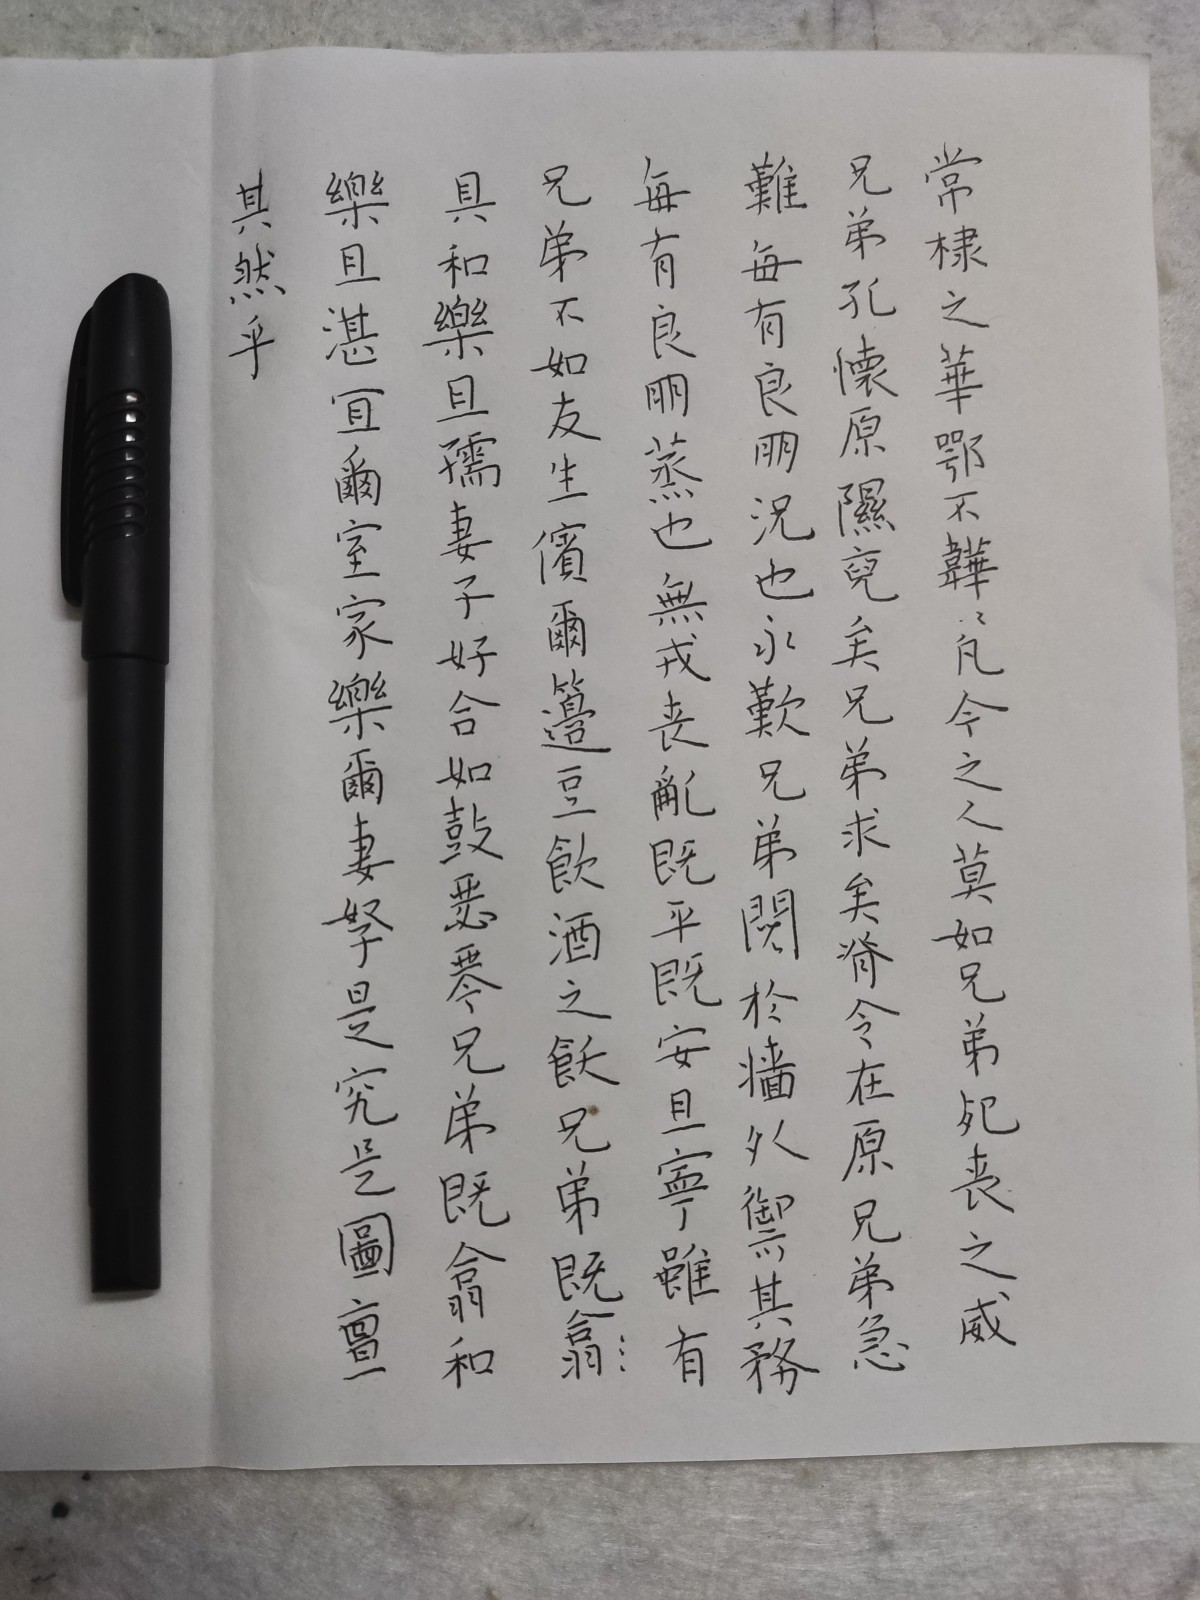 常棣之華鄂不韡〻凡今之人莫如兄弟死喪之威
兄弟孔懷原隰裒矣兄弟求矣脊令在原兄弟急
難每有良朋況也永歎兄弟鬩於牆外禦其務
每有良朋蒸也無戎喪亂既平既安且寧雖有
兄弟不如友生儐爾籩豆飲酒之飫兄弟既翕⋮
具和樂且孺妻子好合如鼓瑟琴兄弟既翕和
樂且湛宜爾室家樂爾妻孥是究是圖亶
其然乎